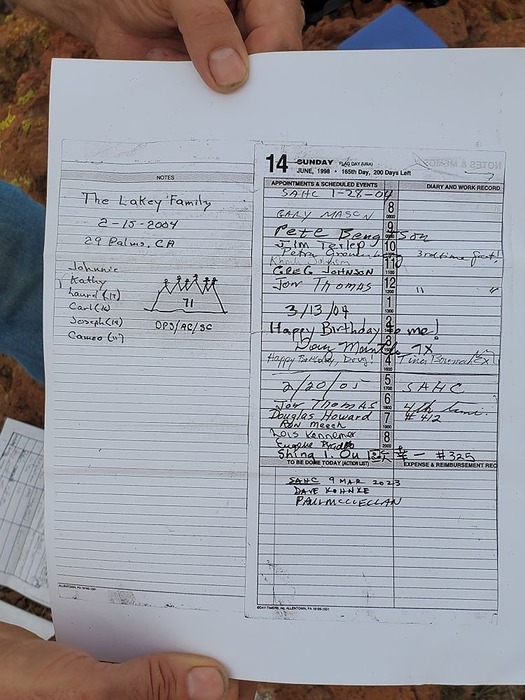 NOTES
The Lakey Family
2-15-2004
29 Palms, CA
Johnnie
Kathy
Laura
Carl (16)
Joseph (14)
Cameo
71
OPS/AC/SC
ALLENTOWN, PA
14 SUNDAY FLAG DAY (USA)
JUNE, 1998 • 165th Day, 200 Days Left
APPOINTMENTS & SCHEDULED EVENTS
DIARY AND WORK RECORD
SAHC 1-28-04
8
GARY MASON
9
Pete Bengtson
10
Jim Terlep 3rd time
11
GREG JOHNSON
Joy Thomas 12 " "
1
3/13/04
Happy Birthday to me!
Doug TX
Happy Birthday, Doug! 4
5
2/20/05 SAHC
Joy Thomas 6 4th time
Douglas Howard 7 #412
Ron Meech
Lois Kennemer 8
Eugene
Shing I. Ou - #325
TO BE DONE TODAY (ACTION LIST)
EXPENSE & REIMBURSEMENT REC
SAHC 9 MAR 2023
DAVE KOHNKE
PAUL MCCLELLAN
ALLENTOWN, PA